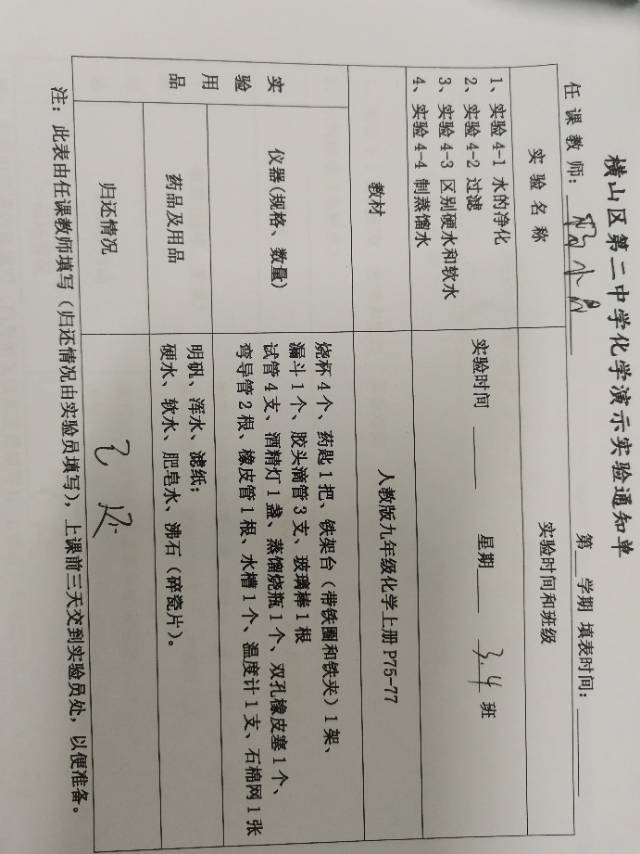 横山区第二中学化学演示实验通知单
任课教师： 第 学期 填表时间：
实验名称 实验时间和班级
1、实验 4-1 水的净化
2、实验 4-2 过滤
3、实验 4-3 区别硬水和软水
4、实验 4-4 制蒸馏水
实验时间 星期 3.4 班
教材 人教版九年级化学上册 P75-77
实验用品
仪器(规格、数量)
烧杯 4 个、药匙 1 把、铁架台（带铁圈和铁夹）1 架、
漏斗 1 个、胶头滴管 3 支、玻璃棒 1 根
试管 4 支、酒精灯 1 盏、蒸馏烧瓶 1 个、双孔橡皮塞 1 个、
弯导管 2 根、橡皮管 1 根、水槽 1 个、温度计 1 支、石棉网 1 张
药品及用品
明矾、浑水、滤纸；
硬水、软水、肥皂水、沸石（碎瓷片）。
归还情况 已还
注：此表由任课教师填写（归还情况由实验员填写），上课前三天交到实验员处，以便准备。